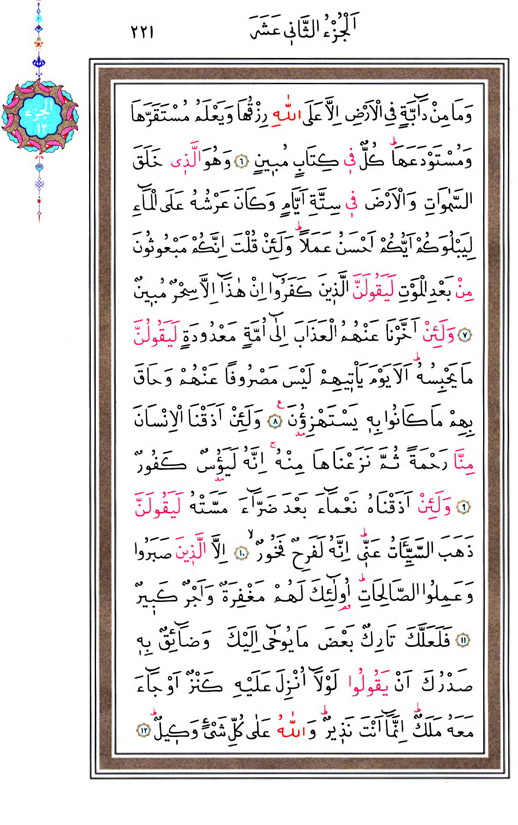 ٢٢١ اَلْجُزْءُ الثَّانٖي عَشَرَ
الجزء
١٢
وَمَا مِنْ دَٓابَّةٍ فِي الْاَرْضِ اِلَّا عَلَى اللّٰهِ رِزْقُهَا وَيَعْلَمُ مُسْتَقَرَّهَا
وَمُسْتَوْدَعَهَاؕ كُلٌّ فٖي كِتَابٍ مُبٖينٍ ﴿٦﴾ وَهُوَ الَّذٖي خَلَقَ
السَّمٰوَاتِ وَالْاَرْضَ فٖي سِتَّةِ اَيَّامٍ وَكَانَ عَرْشُهُ عَلَى الْمَٓاءِ
لِيَبْلُوَكُمْ اَيُّكُمْ اَحْسَنُ عَمَلاًؕ وَلَئِنْ قُلْتَ اِنَّكُمْ مَبْعُوثُونَ
مِنْ بَعْدِ الْمَوْتِ لَيَقُولَنَّ الَّذٖينَ كَفَرُٓوا اِنْ هٰذَٓا اِلَّا سِحْرٌ مُبٖينٌ
﴿٧﴾ وَلَئِنْ اَخَّرْنَا عَنْهُمُ الْعَذَابَ اِلٰٓى اُمَّةٍ مَعْدُودَةٍ لَيَقُولُنَّ
مَا يَحْبِسُهُؕ اَلَا يَوْمَ يَأْتٖيهِمْ لَيْسَ مَصْرُوفًا عَنْهُمْ وَحَاقَ
بِهِمْ مَا كَانُوا بِهٖ يَسْتَهْزِؤُ۫نَࣖ ﴿٨﴾ وَلَئِنْ اَذَقْنَا الْاِنْسَانَ
مِنَّا رَحْمَةً ثُمَّ نَزَعْنَاهَا مِنْهُۚ اِنَّهُ لَيَؤُ۫سٌ كَفُورٌ
﴿٩﴾ وَلَئِنْ اَذَقْنَاهُ نَعْمَٓاءَ بَعْدَ ضَرَّٓاءَ مَسَّتْهُ لَيَقُولَنَّ
ذَهَبَ السَّيِّـَٔاتُ عَنّٖيؕ اِنَّهُ لَفَرِحٌ فَخُورٌۙ ﴿١٠﴾ اِلَّا الَّذٖينَ صَبَرُوا
وَعَمِلُوا الصَّالِحَاتِؕ اُو۬لٰٓئِكَ لَهُمْ مَغْفِرَةٌ وَاَجْرٌ كَبٖيرٌ
﴿١١﴾ فَلَعَلَّكَ تَارِكٌ بَعْضَ مَا يُوحٰٓى اِلَيْكَ وَضَٓائِقٌ بِهٖ
صَدْرُكَ اَنْ يَقُولُوا لَوْلَٓا اُنْزِلَ عَلَيْهِ كَنْزٌ اَوْ جَٓاءَ
مَعَهُ مَلَكٌؕ اِنَّمَٓا اَنْتَ نَذٖيرٌؕ وَاللّٰهُ عَلٰى كُلِّ شَيْءٍ وَكٖيلٌؕ ﴿١٢﴾